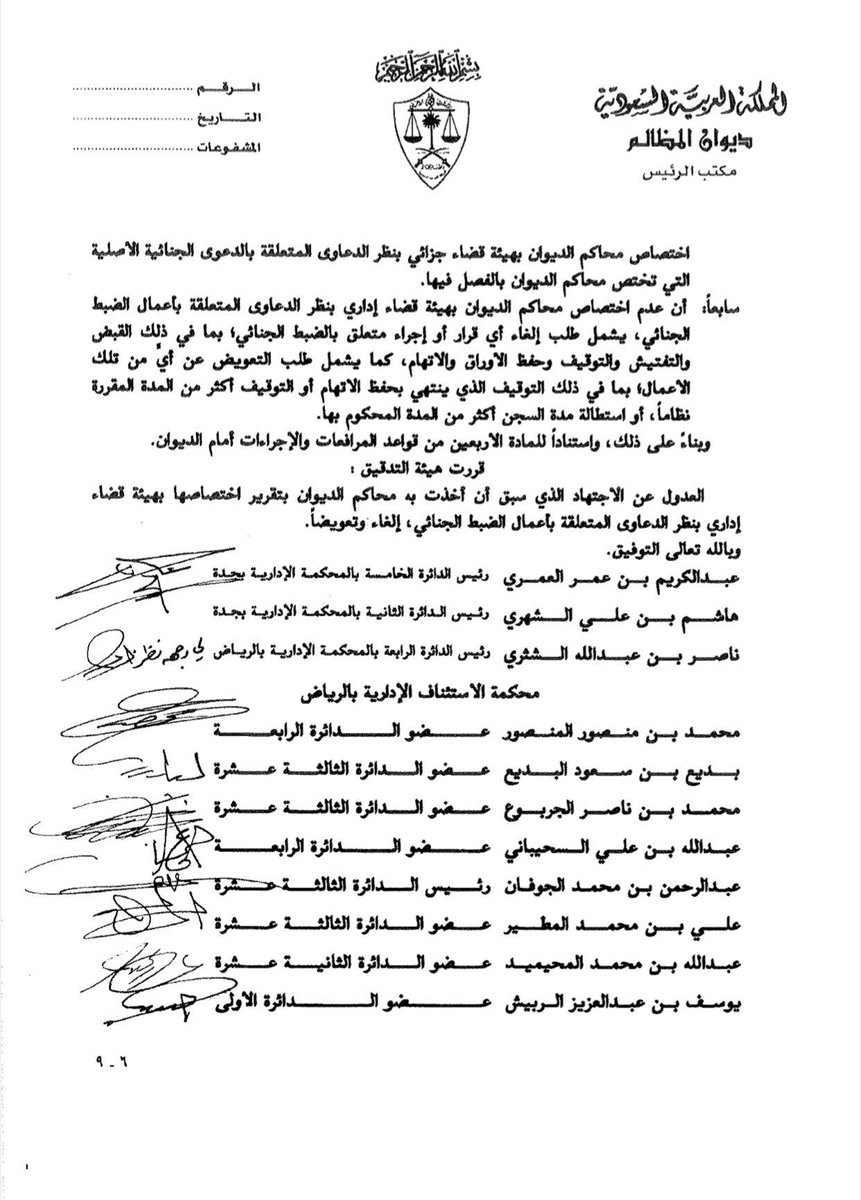 بسم الله الرحمن الرحيم
المملكة العربية السعودية
ديوان المظالم
مكتب الرئيس
الـرقـم ..............................
التـاريخ ..............................
المشفوعات ..............................
اختصاص محاكم الديوان بهيئة قضاء جزائي بنظر الدعاوى المتعلقة بالدعوى الجنائية الأصلية
التي تختص محاكم الديوان بالفصل فيها.
سابعاً: أن عدم اختصاص محاكم الديوان بهيئة قضاء إداري بنظر الدعاوى المتعلقة بأعمال الضبط
الجنائي، يشمل طلب إلغاء أي قرار أو إجراء متعلق بالضبط الجنائي؛ بما في ذلك القبض
والتفتيش والتوقيف وحفظ الأوراق والاتهام، كما يشمل طلب التعويض عن أيٍ من تلك
الأعمال؛ بما في ذلك التوقيف الذي ينتهي بحفظ الاتهام أو التوقيف أكثر من المدة المقررة
نظاماً، أو استطالة مدة السجن أكثر من المدة المحكوم بها.
وبناءً على ذلك، واستناداً للمادة الأربعين من قواعد المرافعات والإجراءات أمام الديوان.
قررت هيئة التدقيق :
العدول عن الاجتهاد الذي سبق أن أخذت به محاكم الديوان بتقرير اختصاصها بهيئة قضاء
إداري بنظر الدعاوى المتعلقة بأعمال الضبط الجنائي، إلغاء وتعويضاً.
وبالله تعالى التوفيق.
عبدالكريم بن عمر العمري رئيس الدائرة الخامسة بالمحكمة الإدارية بجدة
هاشم بن علي الشهري رئيس الدائرة الثانية بالمحكمة الإدارية بجدة
ناصر بن عبدالله الشثري رئيس الدائرة الرابعة بالمحكمة الإدارية بالرياض لي وجهة نظر
محكمة الاستئناف الإدارية بالرياض
محمد بن منصور المنصور عضو الدائرة الرابعة
بديع بن سعود البديع عضو الدائرة الثالثة عشرة
محمد بن ناصر الجربوع عضو الدائرة الثالثة عشرة
عبدالله بن علي السحيباني عضو الدائرة الرابعة
عبدالرحمن بن محمد الجوفان رئيس الدائرة الثالثة عشرة
علي بن محمد المطير عضو الدائرة الثالثة عشرة
عبدالله بن محمد المحيميد عضو الدائرة الثانية عشرة
يوسف بن عبدالعزيز الربيش عضو الدائرة الأولى
٦ - ٩